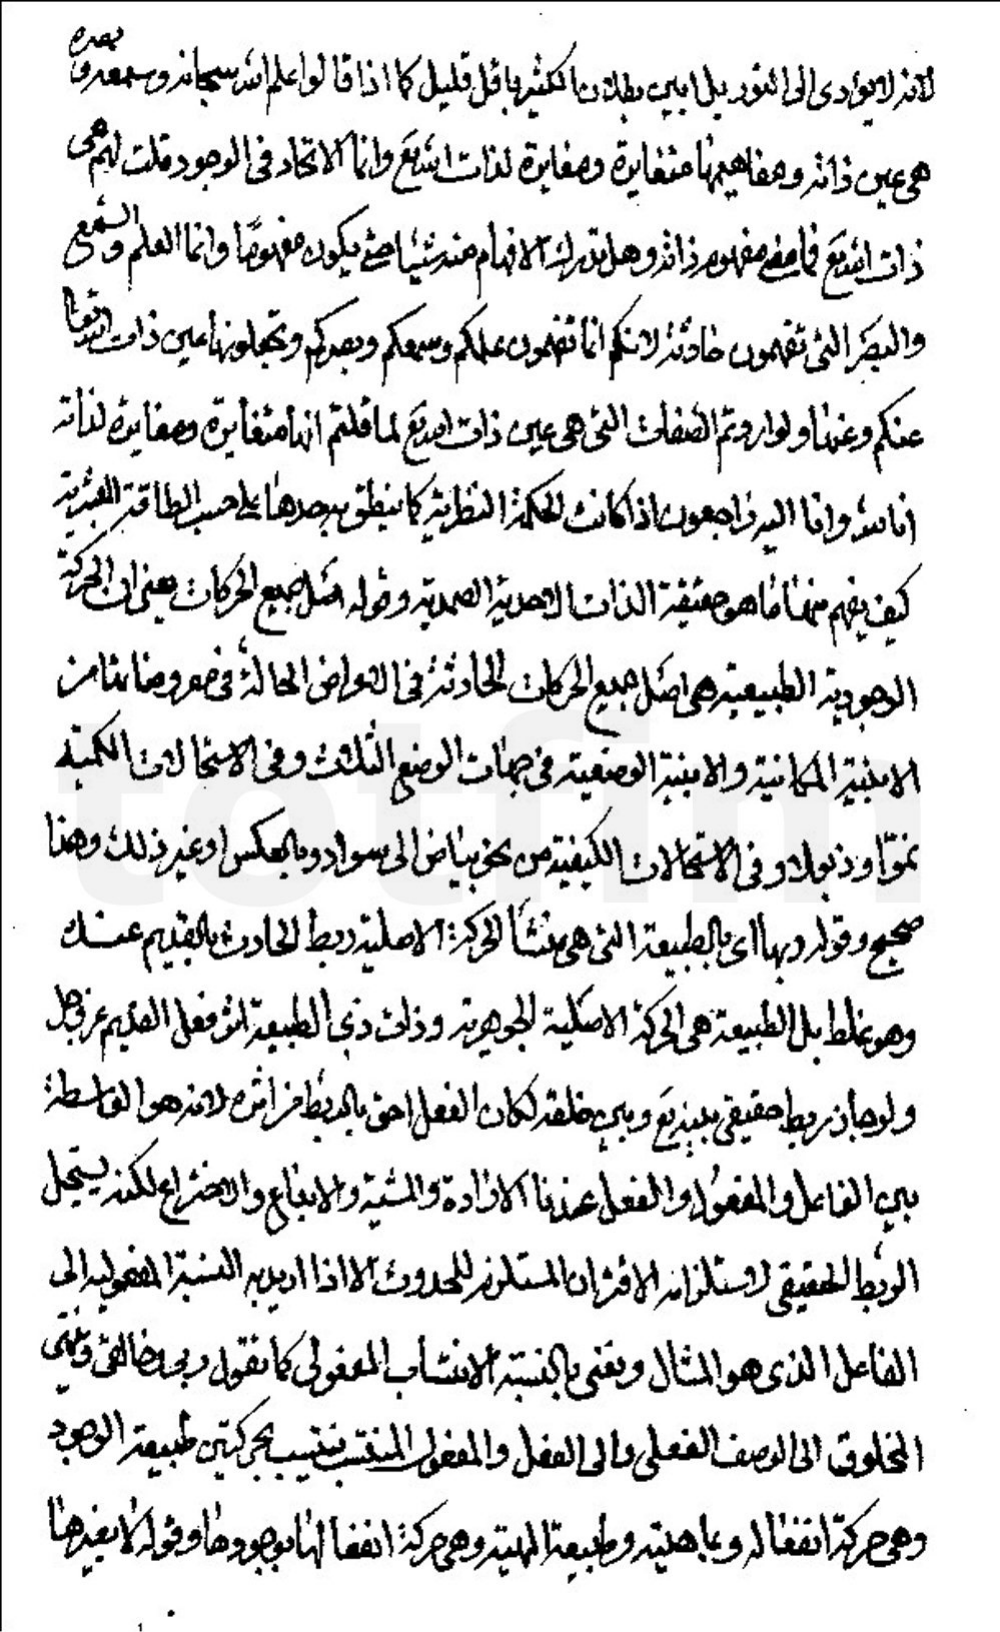 بصره
لانه لا يؤدى الى الدور بل ابين بطلانا لكثير باقل قليل كما اذا قالوا علم الله سبحانه وسمعه و
هى عين ذاته ومفاهيمها متغايرة ومغايرة لذات الله تع وانما الاتحاد فى الوجود قلت لهم هى
ذات الله تع فما معنى مفهوم ذاته وهل تدرك الافهام منه شيئا حتى يكون مفهوما وانما العلم والسمع
والبصر التى تفهمون حادثة لانكم انما تفهمون علمكم وسمعكم وبصركم وتجعلونها عين ذات الله تعالى
عنكم وعنها ولو اردتم الصفات التى هى عين ذات الله تع لما قلتم انها متغايرة ومغايرة لذاته
انا لله وانا اليه راجعون اذا كانت الحكمة النظرية كما ينطق به حدها على حسب الطاقة البشرية
كيف يفهم منها ما هو حقيقة الذات الاحدية الصمدية وقوله اصل جميع الحركات يعنى ان الحركة
الوجودية الطبيعية هى اصل جميع الحركات الحادثة فى العوارض الحالة فى معروضاتها من
الاينية المكانية والاينية الوضعية فى جهات الوضع الثلاث وفى الاستحالات الكمية
نموا وذبولا وفى الاستحالات الكيفية من نحو بياض الى سواد وبالعكس او غير ذلك وهذا
صحيح وقوله وبها اى بالطبيعة التى هى منشأ الحركة الاصلية ربط الحادث بالقديم عنده
وهو غلط بل الطبيعة هى الحركة الاصلية الجوهرية وذات ذى الطبيعة اثر فعل القديم عز وجل
ولو جاز ربط حقيقى بينه تع وبين خلقه لكان الفعل احق بالربط من اثره لانه هو الواسطة
بين الفاعل والمفعول والفعل عندنا الارادة والمشية والابداع والاختراع لكنه يستحيل
الربط الحقيقى لاستلزامه الاقتران المستلزم للحدوث الا اذا اريد به النسبة المفعولية الى
الفاعل الذى هو المثال ونعنى بالنسبة الانتساب المفعولى كما نقول ربى خالقى
المخلوق الى الوصف الفعلى والى الفعل والمفعول المنتسب ينتسب بحركتين طبيعة الوجود
وهى حركة انفعاله وبماهيته وطبيعة المهية وهى حركة انفعالها بوجودها وقوله لا بغيرها